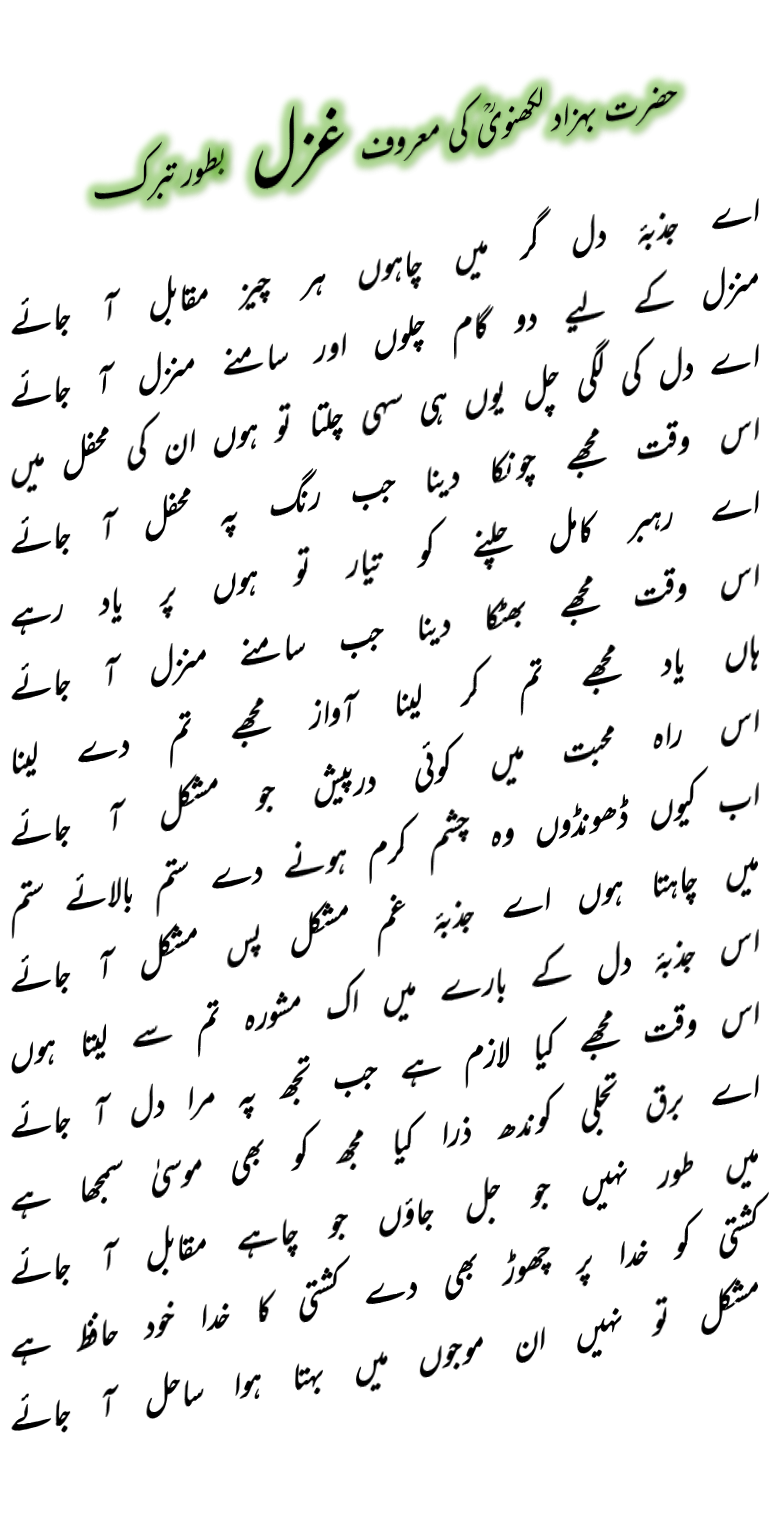 حضرت بہزاد لکھنویؒ کی معروف غزل بطور تبرک
اے جذبۂ دل گر میں چاہوں ہر چیز مقابل آ جائے
منزل کے لیے دو گام چلوں اور سامنے منزل آ جائے
اے دل کی لگی چل یوں ہی سہی چلتا تو ہوں ان کی محفل میں
اس وقت مجھے چونکا دینا جب رنگ پہ محفل آ جائے
اے رہبر کامل چلنے کو تیار تو ہوں پر یاد رہے
اس وقت مجھے بھٹکا دینا جب سامنے منزل آ جائے
ہاں یاد مجھے تم کر لینا آواز مجھے تم دے لینا
اس راہ محبت میں کوئی درپیش جو مشکل آ جائے
اب کیوں ڈھونڈوں وہ چشم کرم ہونے دے ستم بالائے ستم
میں چاہتا ہوں اے جذبۂ غم مشکل پس مشکل آ جائے
اس جذبۂ دل کے بارے میں اک مشورہ تم سے لیتا ہوں
اس وقت مجھے کیا لازم ہے جب تجھ پہ مرا دل آ جائے
اے برق تجلی کوندھ ذرا کیا مجھ کو بھی موسیٰ سمجھا ہے
میں طور نہیں جو جل جاؤں جو چاہے مقابل آ جائے
کشتی کو خدا پر چھوڑ بھی دے کشتی کا خدا خود حافظ ہے
مشکل تو نہیں ان موجوں میں بہتا ہوا ساحل آ جائے